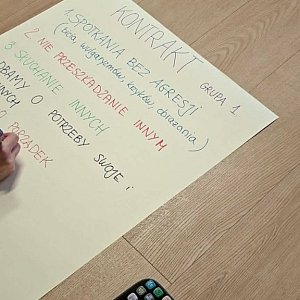 KONTRAKT
GRUPA 1
1. SPOTKANIA BEZ AGRESJI
(bez wulgaryzmów, krzyków, obrażania)
2. NIE PRZESZKADZANIE INNYM
3. SŁUCHANIE INNYCH
DBAMY O POTRZEBY SWOJE i
PORZĄDEK